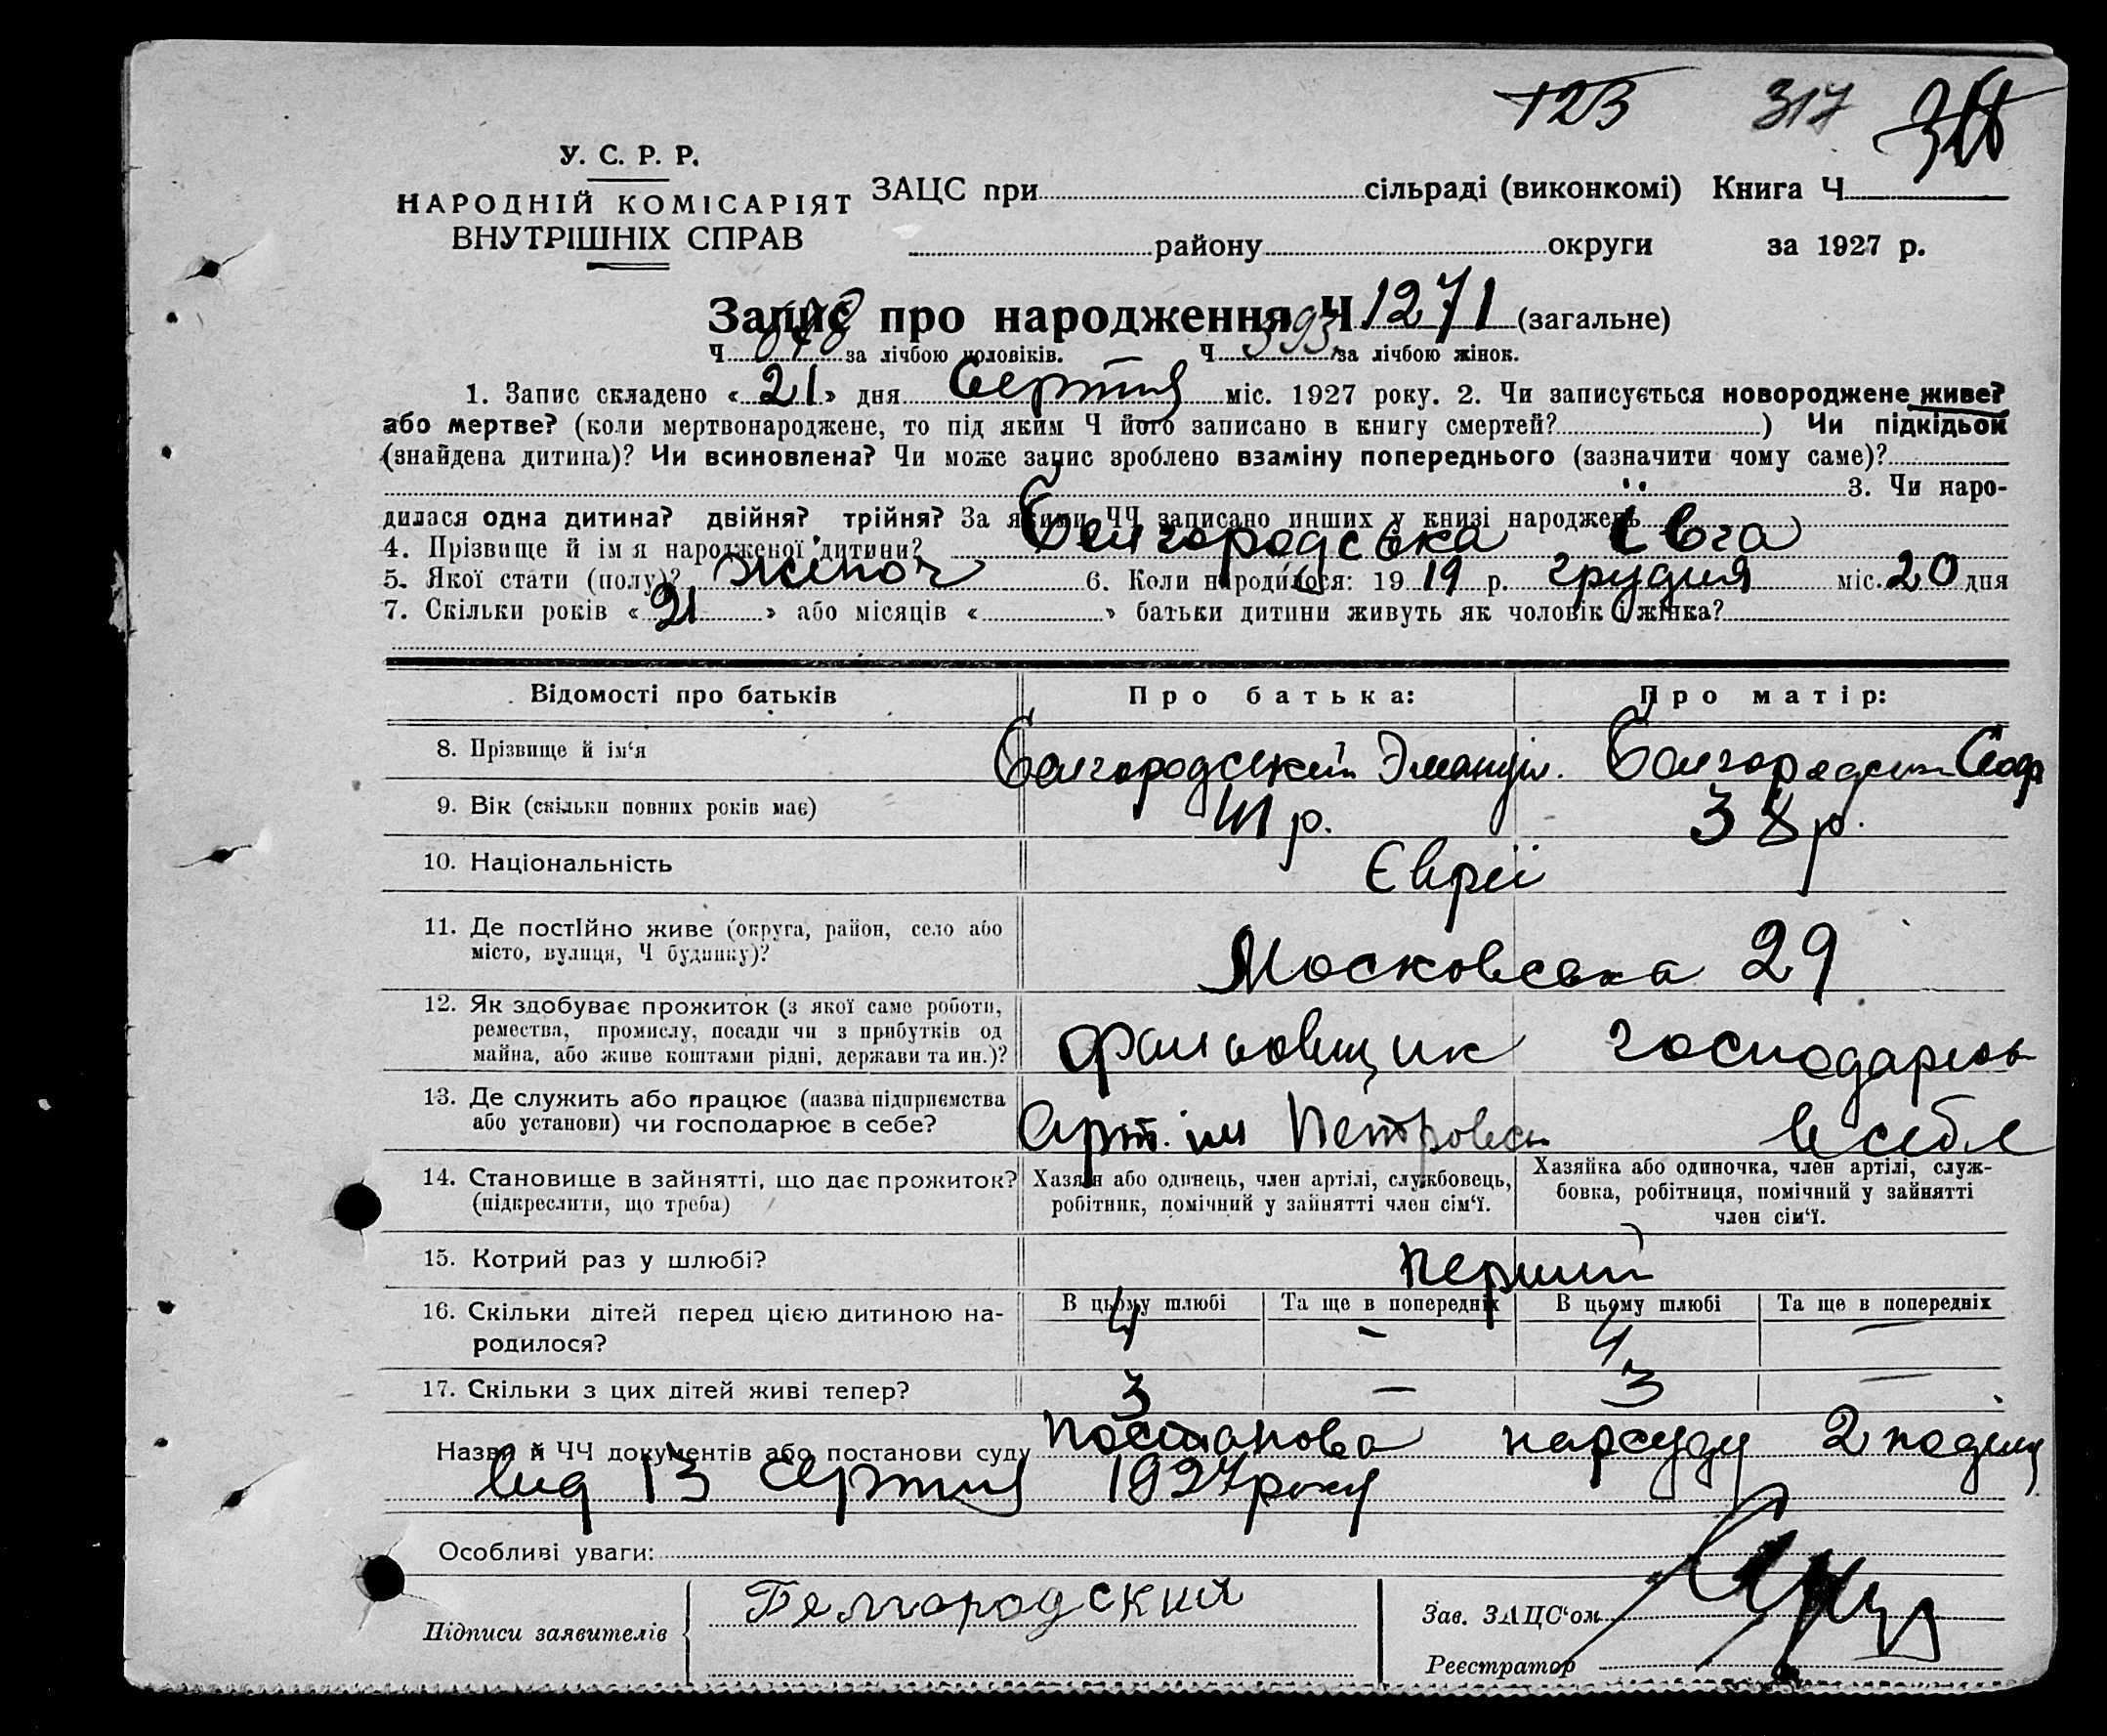 123 317
У. С. Р. Р.
НАРОДНІЙ КОМІСАРІЯТ
ВНУТРІШНІХ СПРАВ
ЗАЦС при сільраді (виконкомі) Книга Ч
району округи за 1927 р.
Запис про народження Ч 1271 (загальне)
Ч 878 за лічбою чоловіків. Ч 393 за лічбою жінок.
1. Запис складено « 21 » дня Серпня міс. 1927 року. 2. Чи записується новороджене живе?
або мертве? (коли мертвонароджене, то під яким Ч його записано в книгу смертей? ) Чи підкідьок
(знайдена дитина)? Чи всиновлена? Чи може запис зроблено взаміну попереднього (зазначити чому саме)?
3. Чи наро-
дилася одна дитина? двійня? трійня? За якими ЧЧ записано инших у книзі народжень
4. Прізвище й ім'я народженої дитини? Белгородська Євга
5. Якої стати (полу)? жіноч 6. Коли народилося: 1919 р. грудня міс. 20 дня
7. Скільки років « 21 » або місяців « » батьки дитини живуть як чоловік і жінка?
Відомості про батьків Про батька: Про матір:
8. Прізвище й ім'я Белгородський Эмануїл. Белгородськ Соф
9. Вік (скільки повних років має) 41 р. 38 р.
10. Національність Євреї
11. Де постійно живе (округа, район, село або
місто, вулиця, Ч будинку)? Московська 29
12. Як здобуває прожиток (з якої саме роботи,
ремества, промислу, посади чи з прибутків од
майна, або живе коштами рідні, держави та ин.)? господарюв
13. Де служить або працює (назва підприємства
або установи) чи господарює в себе? Арт. ім Петровськ в себе
14. Становище в зайнятті, що дає прожиток?
(підкреслити, що треба)
Хазяїн або одинець, член артілі, службовець,
робітник, помічний у зайнятті член сім'ї.
Хазяйка або одиночка, член артілі, служ-
бовка, робітниця, помічний у зайнятті
член сім'ї.
15. Котрий раз у шлюбі? перший
16. Скільки дітей перед цією дитиною на-
родилося?
В цьому шлюбі Та ще в попередніх В цьому шлюбі Та ще в попередніх
4 – 4 –
17. Скільки з цих дітей живі тепер? 3 – 3 –
Назва й ЧЧ документів або постанови суду постанова нарсуду 2
від 13 серпня 1927 року
Особливі уваги:
Підписи заявителів Белгородский
Зав. ЗАЦС'ом
Реєстратор